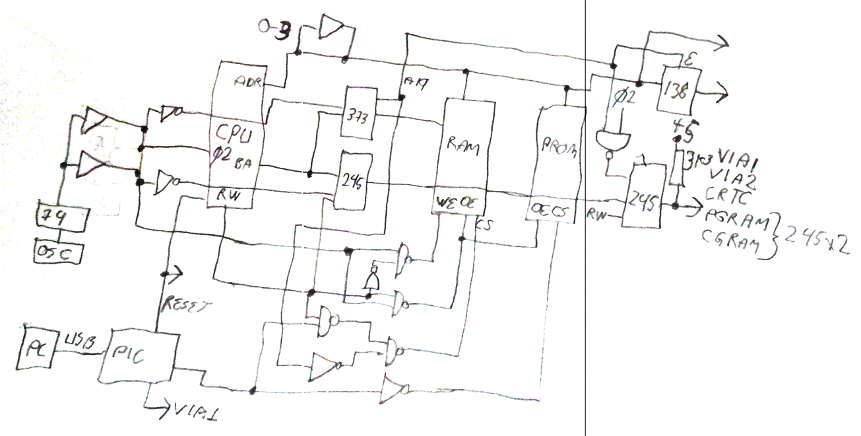 0-3
ADR
CPU
Ø2
BA
RW
373
245
A17
RAM
WE OE
CS
PROM
OE CS
E
138
Ø2
+5
3K3
245
RW
VIA1
VIA2
CRTC
PGRAM
CGRAM
245x2
74
OSC
RESET
PC
USB
PIC
VIA1